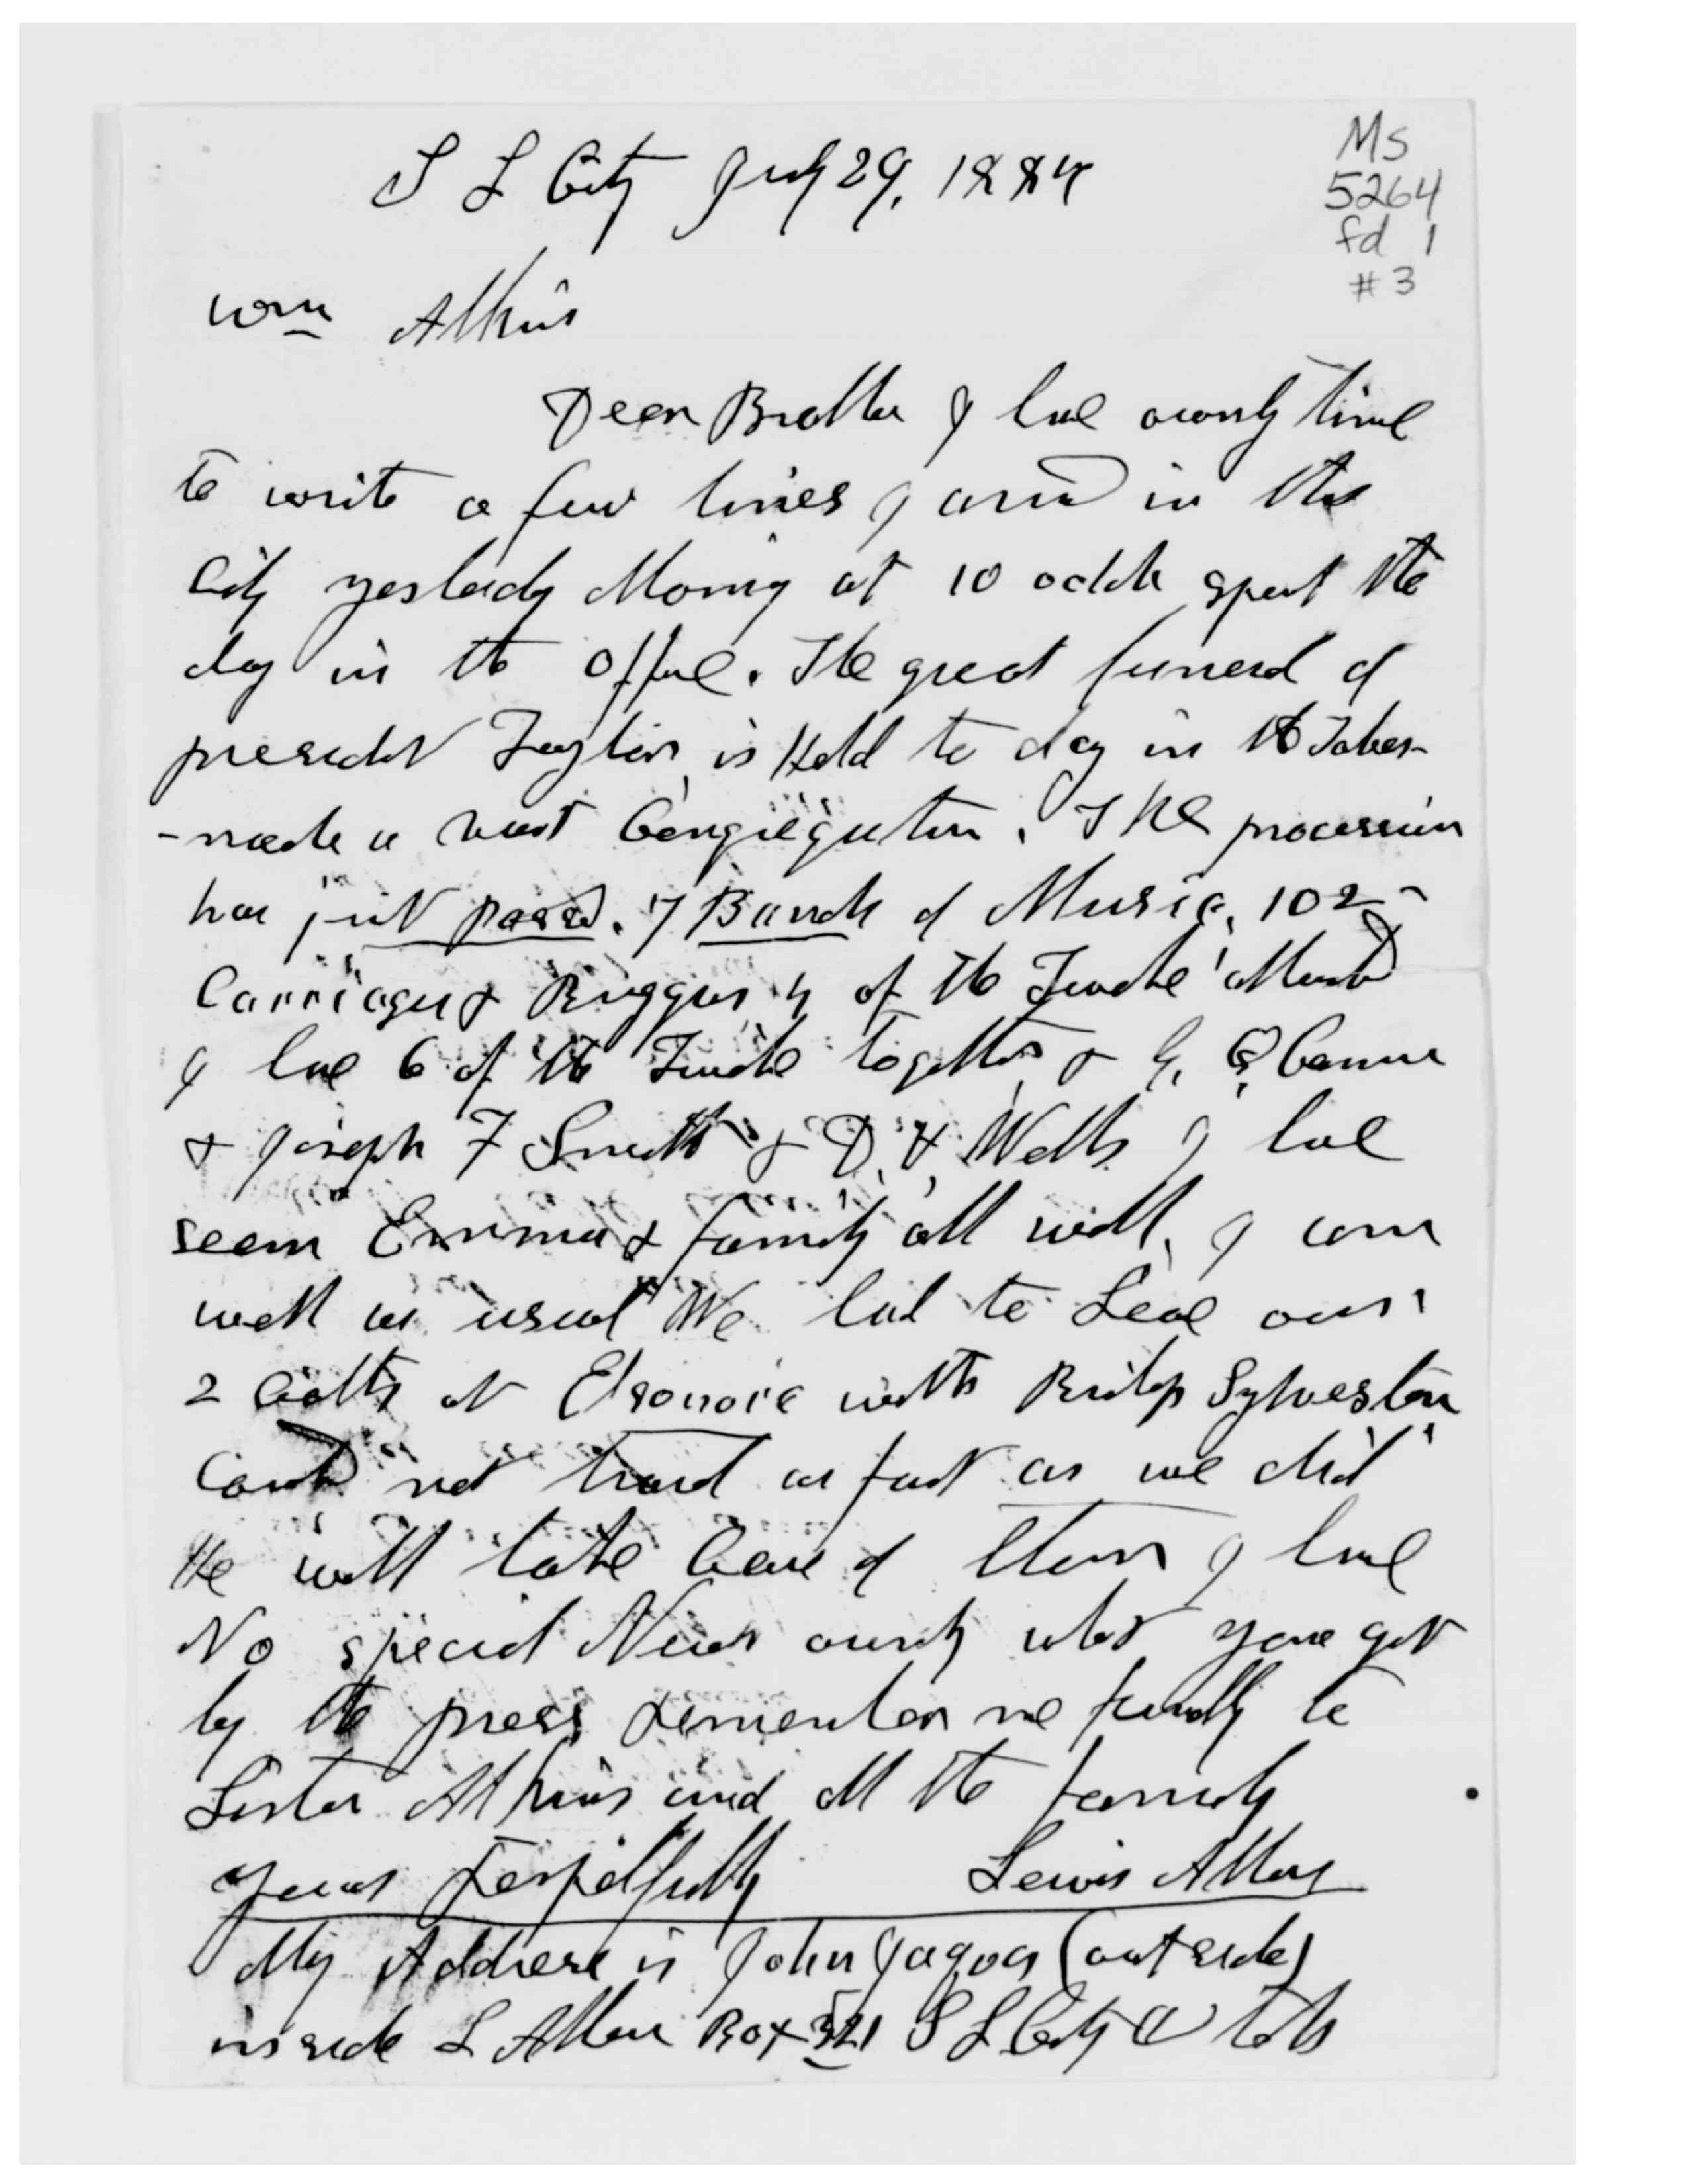 S L City July 29, 1887
Ms
5264
fd 1
#3
Wm Atkin
Dear Brother I have ownly time
to write a few lines I arived in this
City yesterday Morning at 10 oclok spent the
day in the Office. The great funeral of
president Taylor is Held to day in the Taber-
-nacle a vast Congregation. The procession
has just passed. 7 Bands of Music, 102
Carriages & Buggies 4 of the Twelve
I have 6 of the Twelve together & G. Q Cannon
& Joseph F Smith & D. H. Wells I have
seen Emma & family all well, I am
well as usual We had to Leave our
2 Colts at Elsonoir with Bishop Sylvester
Could not travel as fast as we did
He will take Care of them I have
No special News ownly what you get
by the press remember me kindly to
Sister Atkins and all the family
yours respectfully Lewis Allen
My Address is John Jaques (out side)
inside L Allen Box 321 S L City Utah